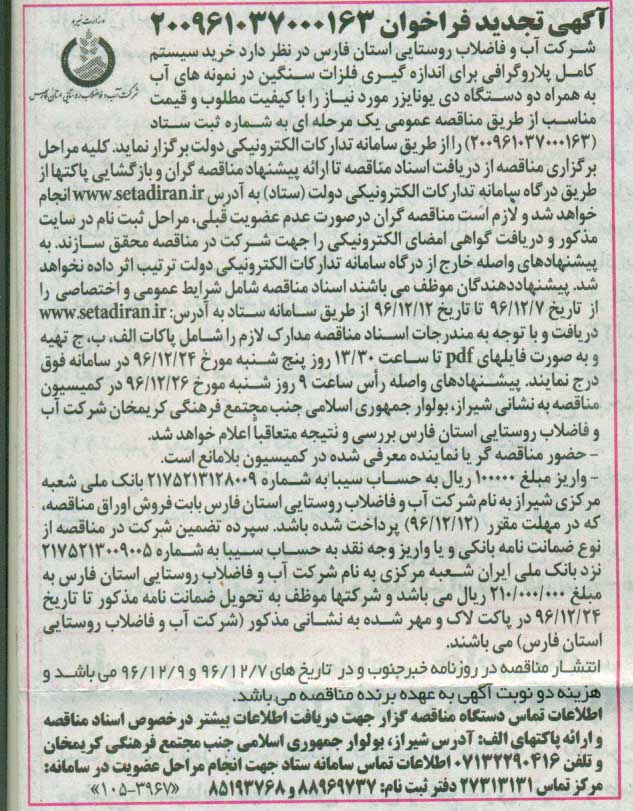 آگهی تجدید فراخوان ۲۰۰۹۶۱۰۳۷۰۰۰۱۶۳
وزارت نیرو
شرکت آب و فاضلاب روستایی استان فارس
شرکت آب و فاضلاب روستایی استان فارس در نظر دارد خرید سیستم
کامل پلاروگرافی برای اندازه گیری فلزات سنگین در نمونه های آب
به همراه دو دستگاه دی یونایزر مورد نیاز را با کیفیت مطلوب و قیمت
مناسب از طریق مناقصه عمومی یک مرحله ای به شماره ثبت ستاد
(۲۰۰۹۶۱۰۳۷۰۰۰۱۶۳) را از طریق سامانه تدارکات الکترونیکی دولت برگزار نماید. کلیه مراحل
برگزاری مناقصه از دریافت اسناد مناقصه تا ارائه پیشنهاد مناقصه گران و بازگشایی پاکتها از
طریق درگاه سامانه تدارکات الکترونیکی دولت (ستاد) به آدرس www.setadiran.ir انجام
خواهد شد و لازم است مناقصه گران درصورت عدم عضویت قبلی، مراحل ثبت نام در سایت
مذکور و دریافت گواهی امضای الکترونیکی را جهت شرکت در مناقصه محقق سازند. به
پیشنهادهای واصله خارج از درگاه سامانه تدارکات الکترونیکی دولت ترتیب اثر داده نخواهد
شد. پیشنهاددهندگان موظف می باشند اسناد مناقصه شامل شرایط عمومی و اختصاصی را
از تاریخ ۹۶/۱۲/۷ تا تاریخ ۹۶/۱۲/۱۲ از طریق سامانه ستاد به آدرس: www.setadiran.ir
دریافت و با توجه به مندرجات اسناد مناقصه مدارک لازم را شامل پاکات الف، ب، ج تهیه
و به صورت فایلهای pdf تا ساعت ۱۳/۳۰ روز پنج شنبه مورخ ۹۶/۱۲/۲۴ در سامانه فوق
درج نمایند. پیشنهادهای واصله رأس ساعت ۹ روز شنبه مورخ ۹۶/۱۲/۲۶ در کمیسیون
مناقصه به نشانی شیراز، بولوار جمهوری اسلامی جنب مجتمع فرهنگی کریمخان شرکت آب
و فاضلاب روستایی استان فارس بررسی و نتیجه متعاقباً اعلام خواهد شد.
- حضور مناقصه گر یا نماینده معرفی شده در کمیسیون بلامانع است.
- واریز مبلغ ۱۰۰۰۰۰ ریال به حساب سیبا به شماره ۲۱۷۵۲۱۳۱۲۸۰۰۹ بانک ملی شعبه
مرکزی شیراز به نام شرکت آب و فاضلاب روستایی استان فارس بابت فروش اوراق مناقصه،
که در مهلت مقرر (۹۶/۱۲/۱۲) پرداخت شده باشد. سپرده تضمین شرکت در مناقصه از
نوع ضمانت نامه بانکی و یا واریز وجه نقد به حساب سیبا به شماره ۲۱۷۵۲۱۳۰۰۹۰۰۵
نزد بانک ملی ایران شعبه مرکزی به نام شرکت آب و فاضلاب روستایی استان فارس به
مبلغ ۲۱۰/۰۰۰/۰۰۰ ریال می باشد و شرکتها موظف به تحویل ضمانت نامه مذکور تا تاریخ
۹۶/۱۲/۲۴ در پاکت لاک و مهر شده به نشانی مذکور (شرکت آب و فاضلاب روستایی
استان فارس) می باشند.
انتشار مناقصه در روزنامه خبرجنوب و در تاریخ های ۹۶/۱۲/۷ و ۹۶/۱۲/۹ می باشد و
هزینه دو نوبت آگهی به عهده برنده مناقصه می باشد.
اطلاعات تماس دستگاه مناقصه گزار جهت دریافت اطلاعات بیشتر درخصوص اسناد مناقصه
و ارائه پاکتهای الف: آدرس شیراز، بولوار جمهوری اسلامی جنب مجتمع فرهنگی کریمخان
و تلفن ۰۷۱۳۲۲۹۰۴۱۶ اطلاعات تماس سامانه ستاد جهت انجام مراحل عضویت در سامانه:
مرکز تماس ۲۷۳۱۳۱۳۱ دفتر ثبت نام: ۸۸۹۶۹۷۳۷ و ۸۵۱۹۳۷۶۸ «۱۰۵-۳۹۶۷»